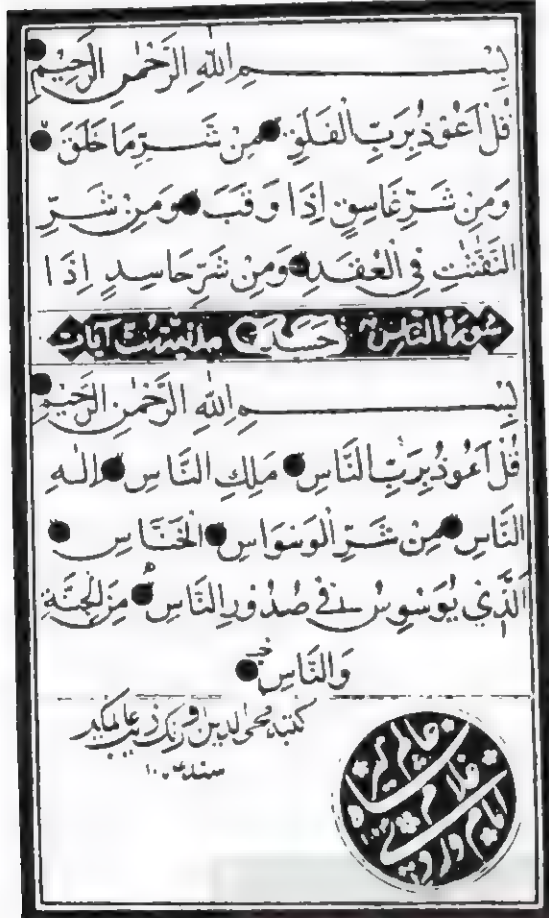 بِسْمِ اللهِ الرَّحْمٰنِ الرَّحِيْمِ
قُلْ اَعُوْذُ بِرَبِّ الْفَلَقِ مِنْ شَرِّ مَا خَلَقَ
وَمِنْ شَرِّ غَاسِقٍ اِذَا وَقَبَ وَمِنْ شَرِّ
النَّفّٰثٰتِ فِي الْعُقَدِ وَمِنْ شَرِّ حَاسِدٍ اِذَا
سورة الناس حَسَدَ مدنية ست آيات
بِسْمِ اللهِ الرَّحْمٰنِ الرَّحِيْمِ
قُلْ اَعُوْذُ بِرَبِّ النَّاسِ مَلِكِ النَّاسِ اِلٰهِ
النَّاسِ مِنْ شَرِّ الْوَسْوَاسِ الْخَنَّاسِ
الَّذِيْ يُوَسْوِسُ فِيْ صُدُوْرِ النَّاسِ مِنَ الْجِنَّةِ
وَالنَّاسِ
كتبه محى الدين اورنگ زيب عالمگير
سنه
عالم گير
غلام
امام وردى